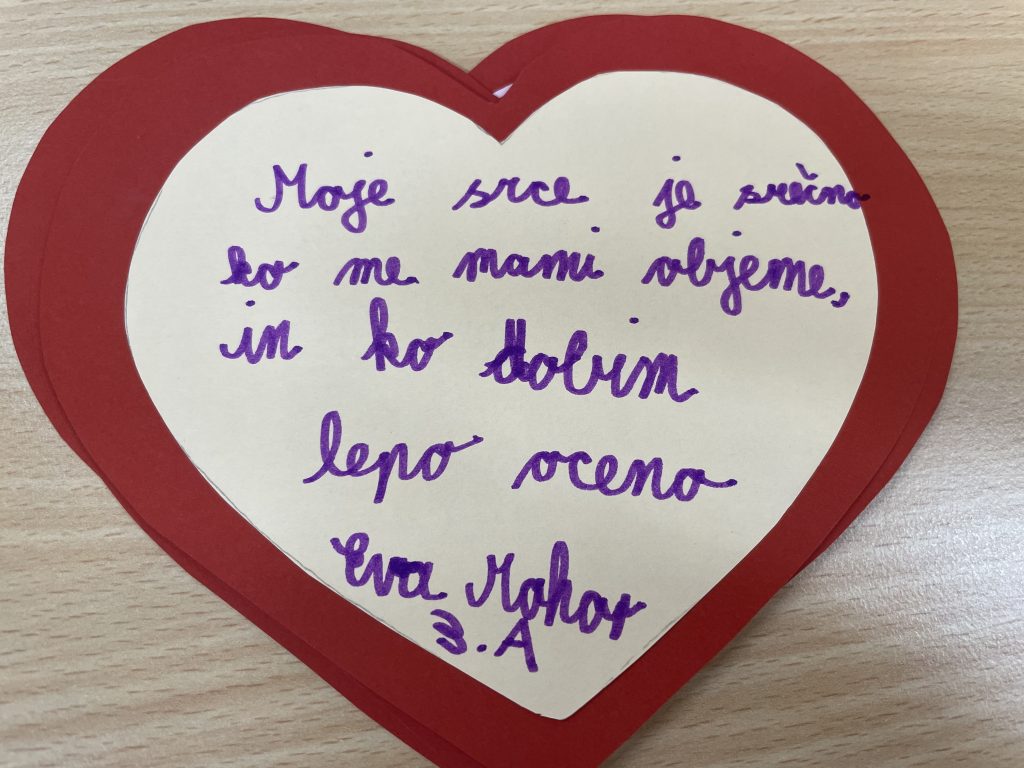 Moje srce je srečno
ko me mami objeme,
in ko dobim
lepo oceno
Eva Mohar
3.A